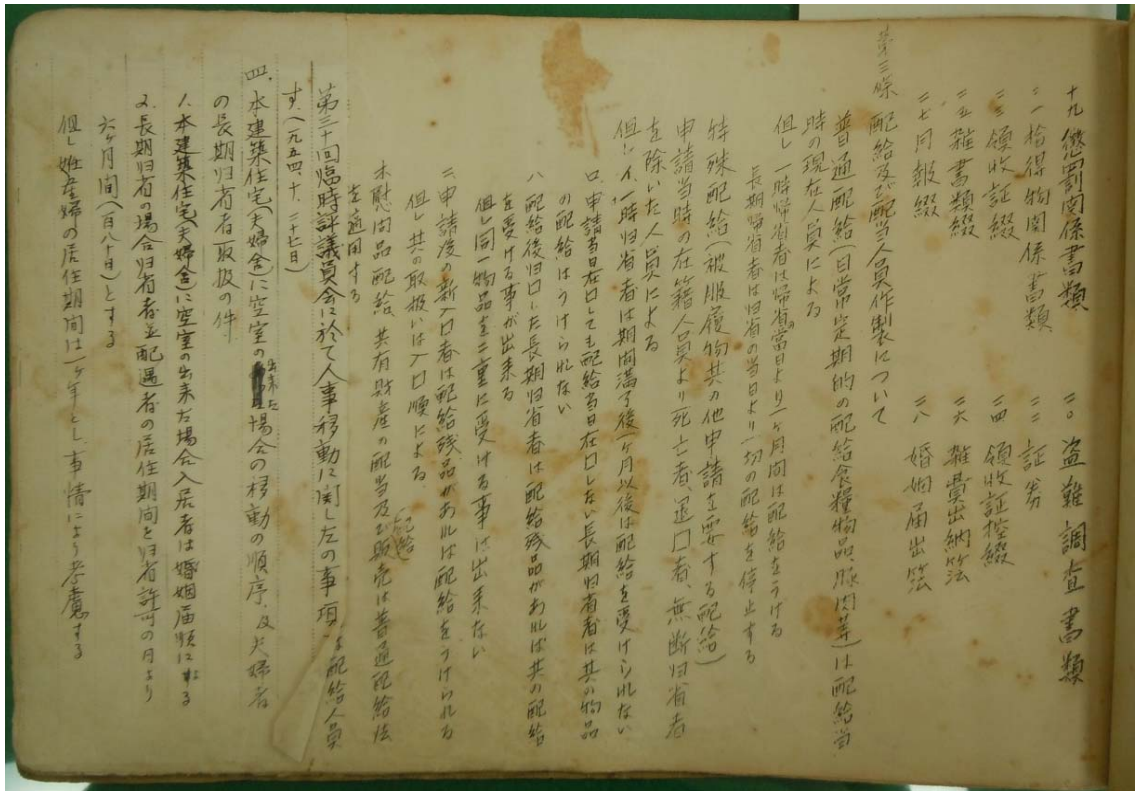 十九 懲罰関係書類　二〇 盗難調査書類
二一 拾得物関係書類　二二 証券
二三 領收証綴　二四 領收証控綴
二五 雑書類綴　二六 雑費出納簿
二七 月報綴　二八 婚姻届出簿
第三條 配給及び配当人員作製について
普通配給(日常定期的の配給食糧物品豚肉等)は配給当
時の現在人員による
但し一時帰省者は帰省の当日より一ヶ月間は配給をうける
長期帰省者は归省の当日より一切の配給を停止する
特殊配給(被服履物其の他申請を要する配給)
申請当時の在籍人員より死亡者、退口者、無断归省者
を除いた人員による
但し イ、一時归省者は期間満了後一ヶ月以後は配給を受けられない
ロ、申請当日在口しても配給当日在口しない長期归省者は其の物品
の配給はうけられない
ハ、配給後归口した長期归省者は配給残品があれば其の配給
を受ける事が出来る
但し同一物品を二重に受ける事は出来ない
ニ、申請後の新入口者は配給残品があれば配給をうけられる
但し其の取扱いは入口順による
ホ、慰問品配給 共有財産の配当及び配給販売は普通配給法
を適用する
第三十回臨時評議員会に於て人事移動に関し左の事項 配給人員
す、(一九五四、十、二十七日)
四、本建築住宅(夫婦舎)に空室の出来た場合の移動の順序、及夫婦者
の長期归省者取扱の件
1、本建築住宅(夫婦舎)に空室の出来た場合入居者は婚姻届順による
2、長期归省の場合归省者並配遇者の居住期間を归省許可の日より
六ヶ月間(百八十日)とする
但し妊産婦の居住期間は一ヶ年とし、事情により考慮する